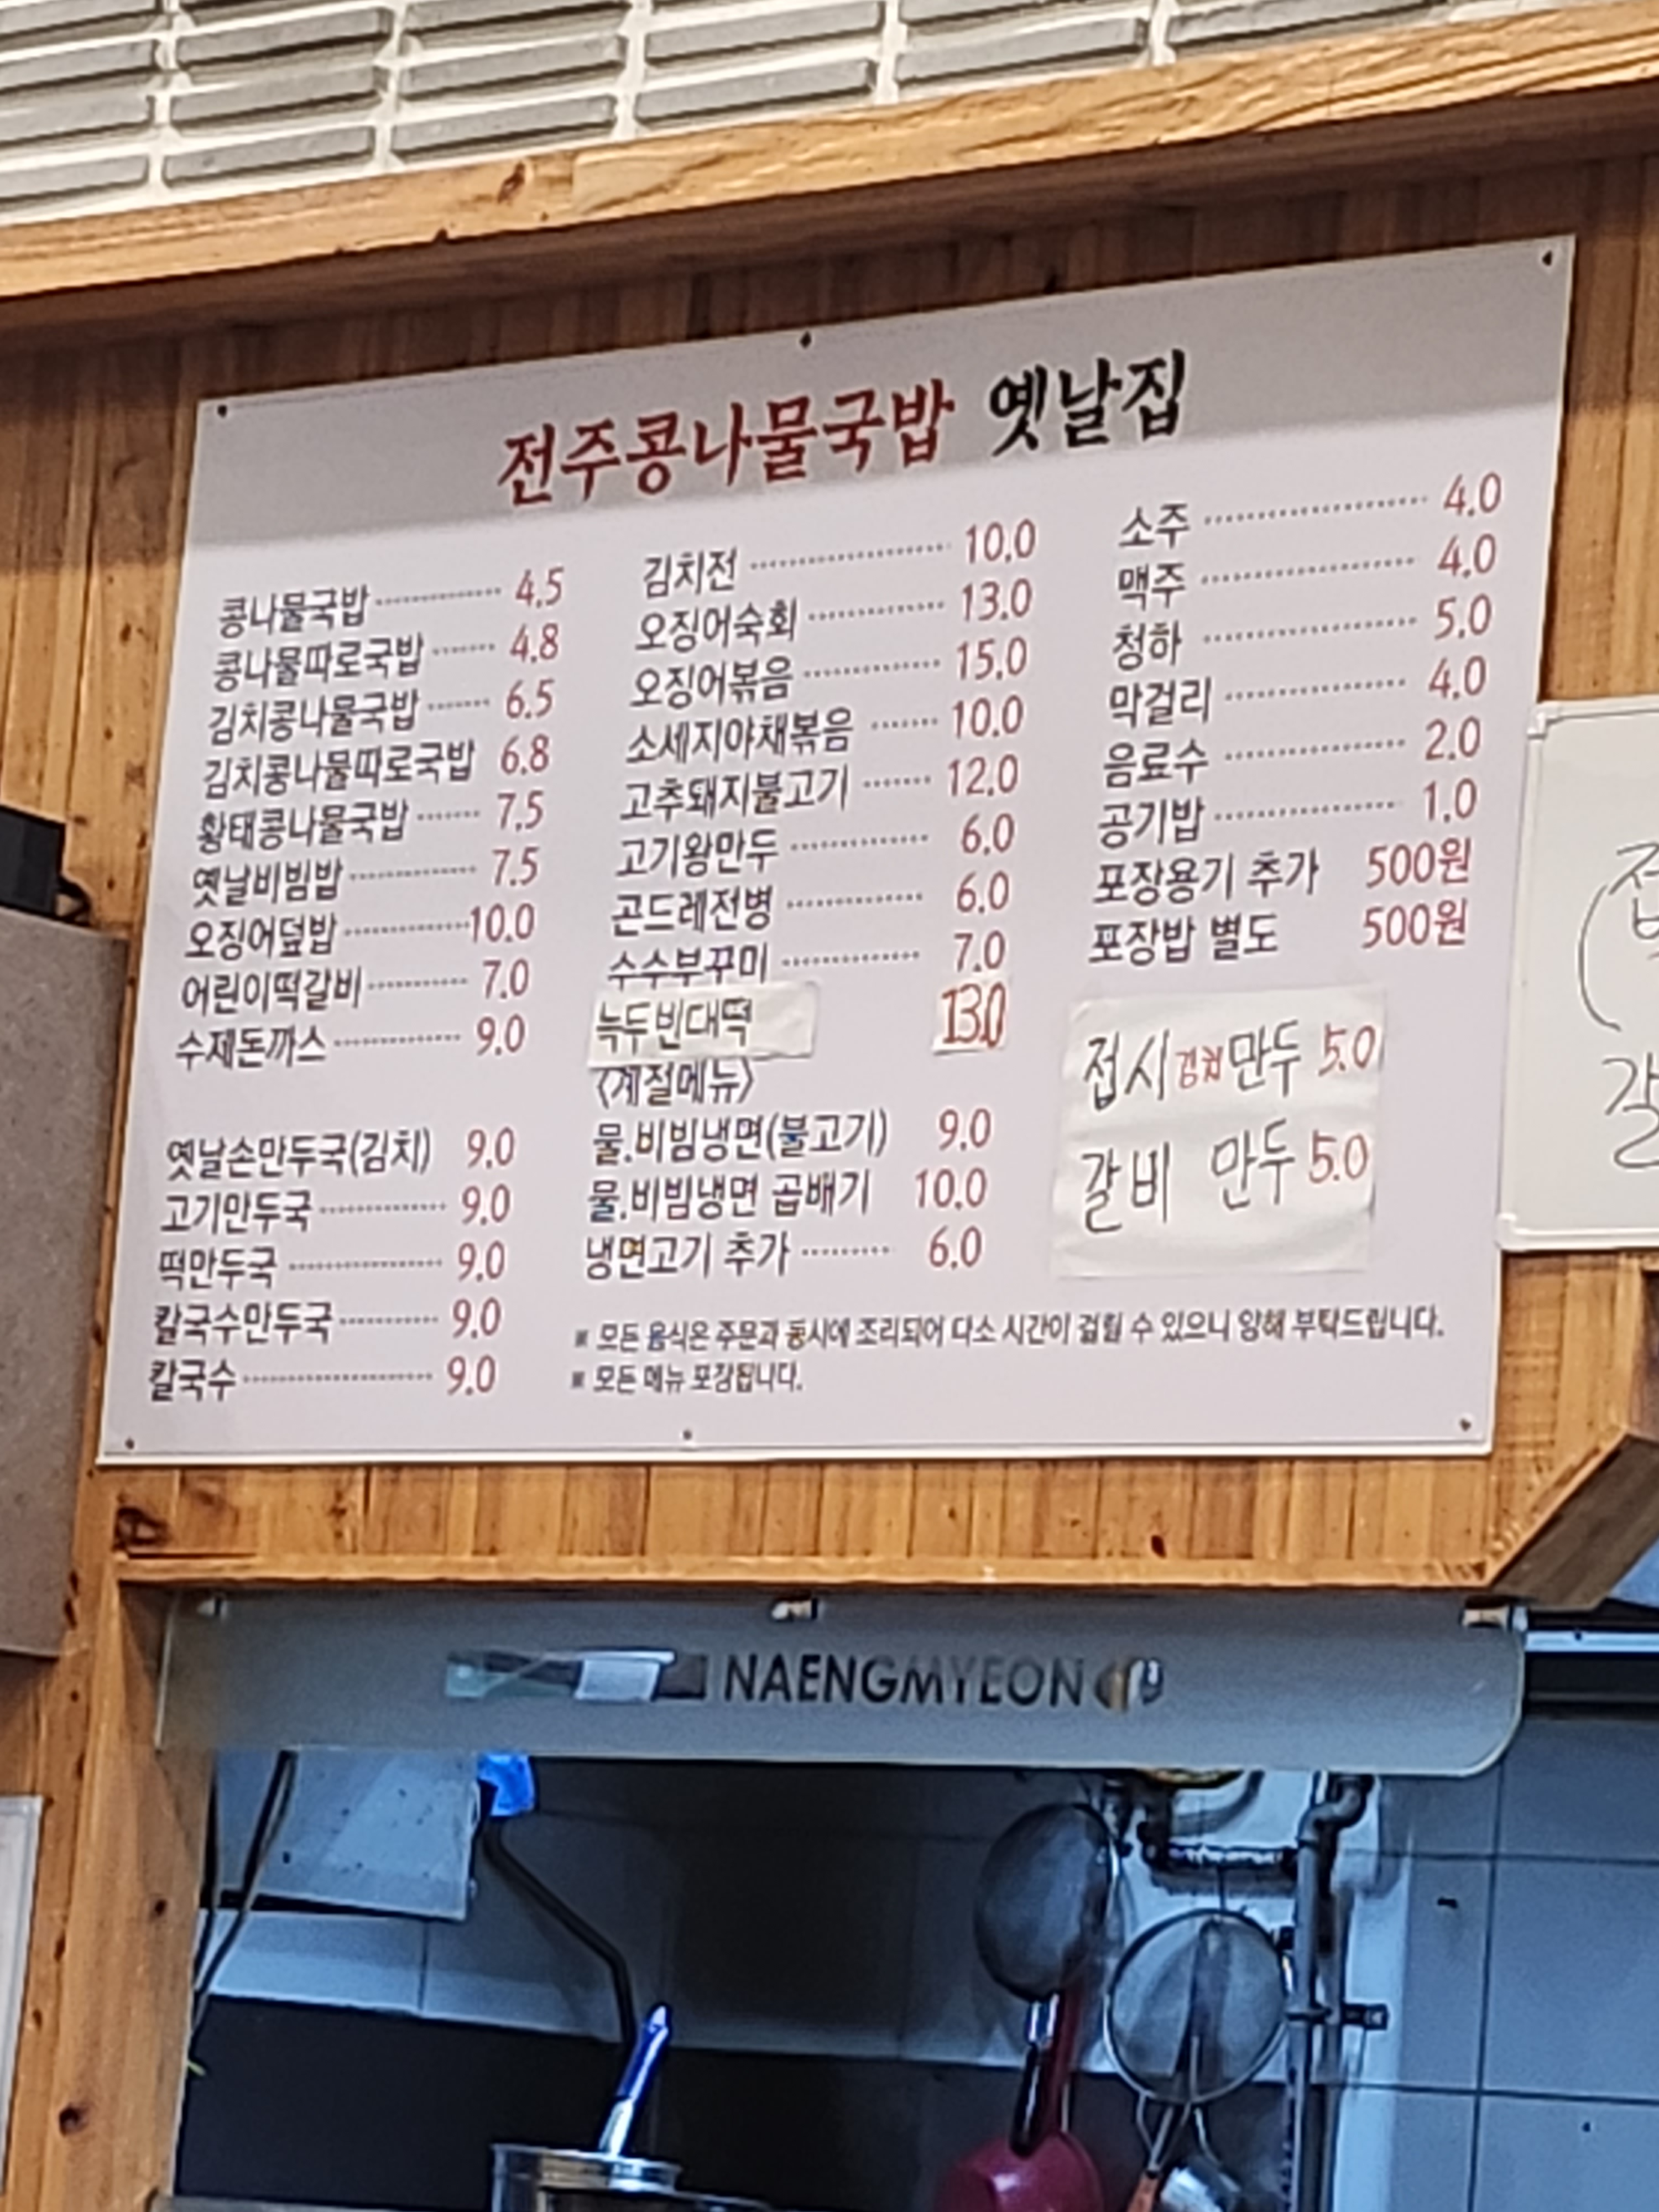 전주콩나물국밥 옛날집
콩나물국밥 4.5
콩나물따로국밥 4.8
김치콩나물국밥 6.5
김치콩나물따로국밥 6.8
황태콩나물국밥 7.5
옛날비빔밥 7.5
오징어덮밥 10.0
어린이떡갈비 7.0
수제돈까스 9.0
옛날손만두국(김치) 9.0
고기만두국 9.0
떡만두국 9.0
칼국수만두국 9.0
칼국수 9.0
김치전 10.0
오징어숙회 13.0
오징어볶음 15.0
소세지야채볶음 10.0
고추돼지불고기 12.0
고기왕만두 6.0
곤드레전병 6.0
수수부꾸미 7.0
녹두빈대떡 13.0
<계절메뉴>
물.비빔냉면(불고기) 9.0
물.비빔냉면 곱배기 10.0
냉면고기 추가 6.0
소주 4.0
맥주 4.0
청하 5.0
막걸리 4.0
음료수 2.0
공기밥 1.0
포장용기 추가 500원
포장밥 별도 500원
접시김치만두 5.0
갈비 만두 5.0
※ 모든 음식은 주문과 동시에 조리되어 다소 시간이 걸릴 수 있으니 양해 부탁드립니다.
※ 모든 메뉴 포장됩니다.
NAENGMYEON